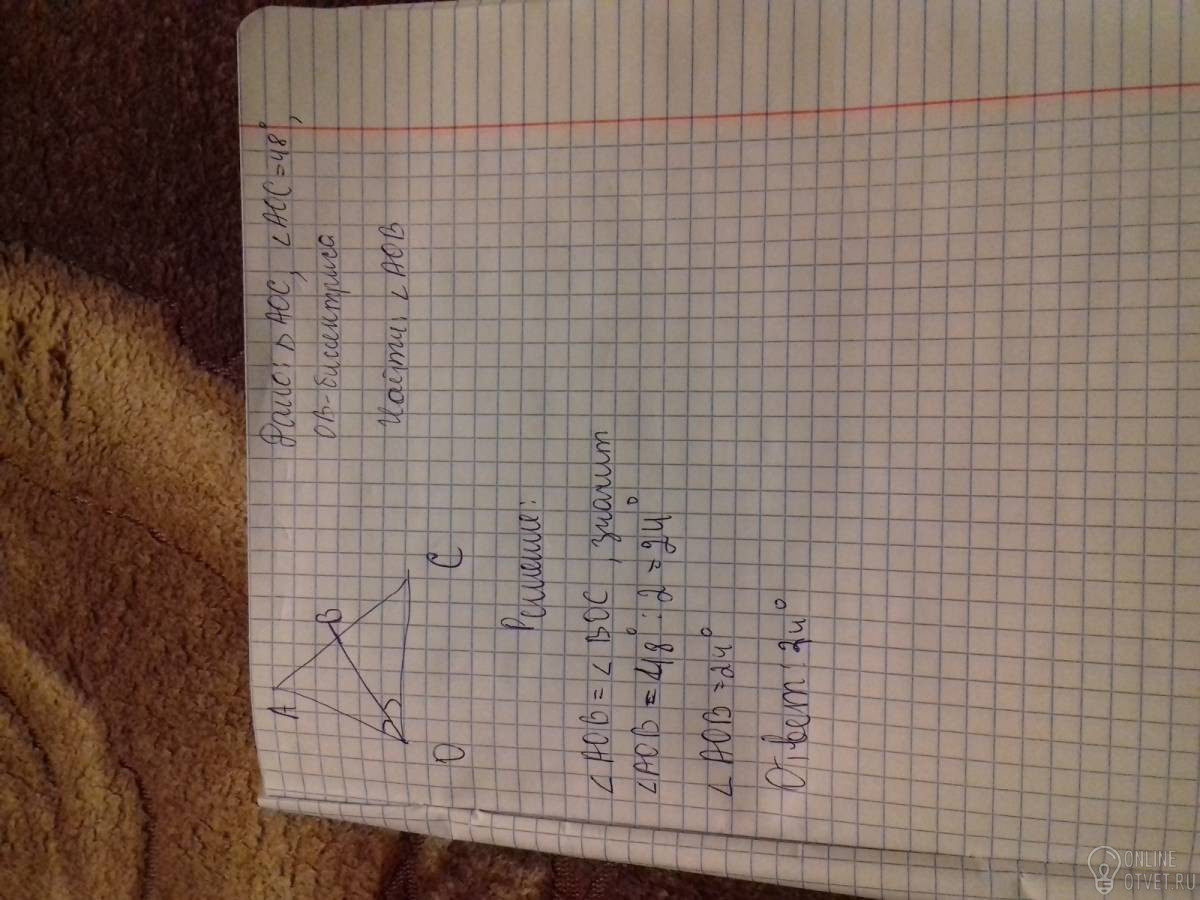 Дано: △AOC, ∠AOC=48°,
OB-биссектриса
Найти: ∠AOB
A
B
O
C
Решение:
∠AOB=∠BOC, значит
∠AOB=48°:2=24°
∠AOB=24°
Ответ: 24°
ONLINE
OTVET.RU